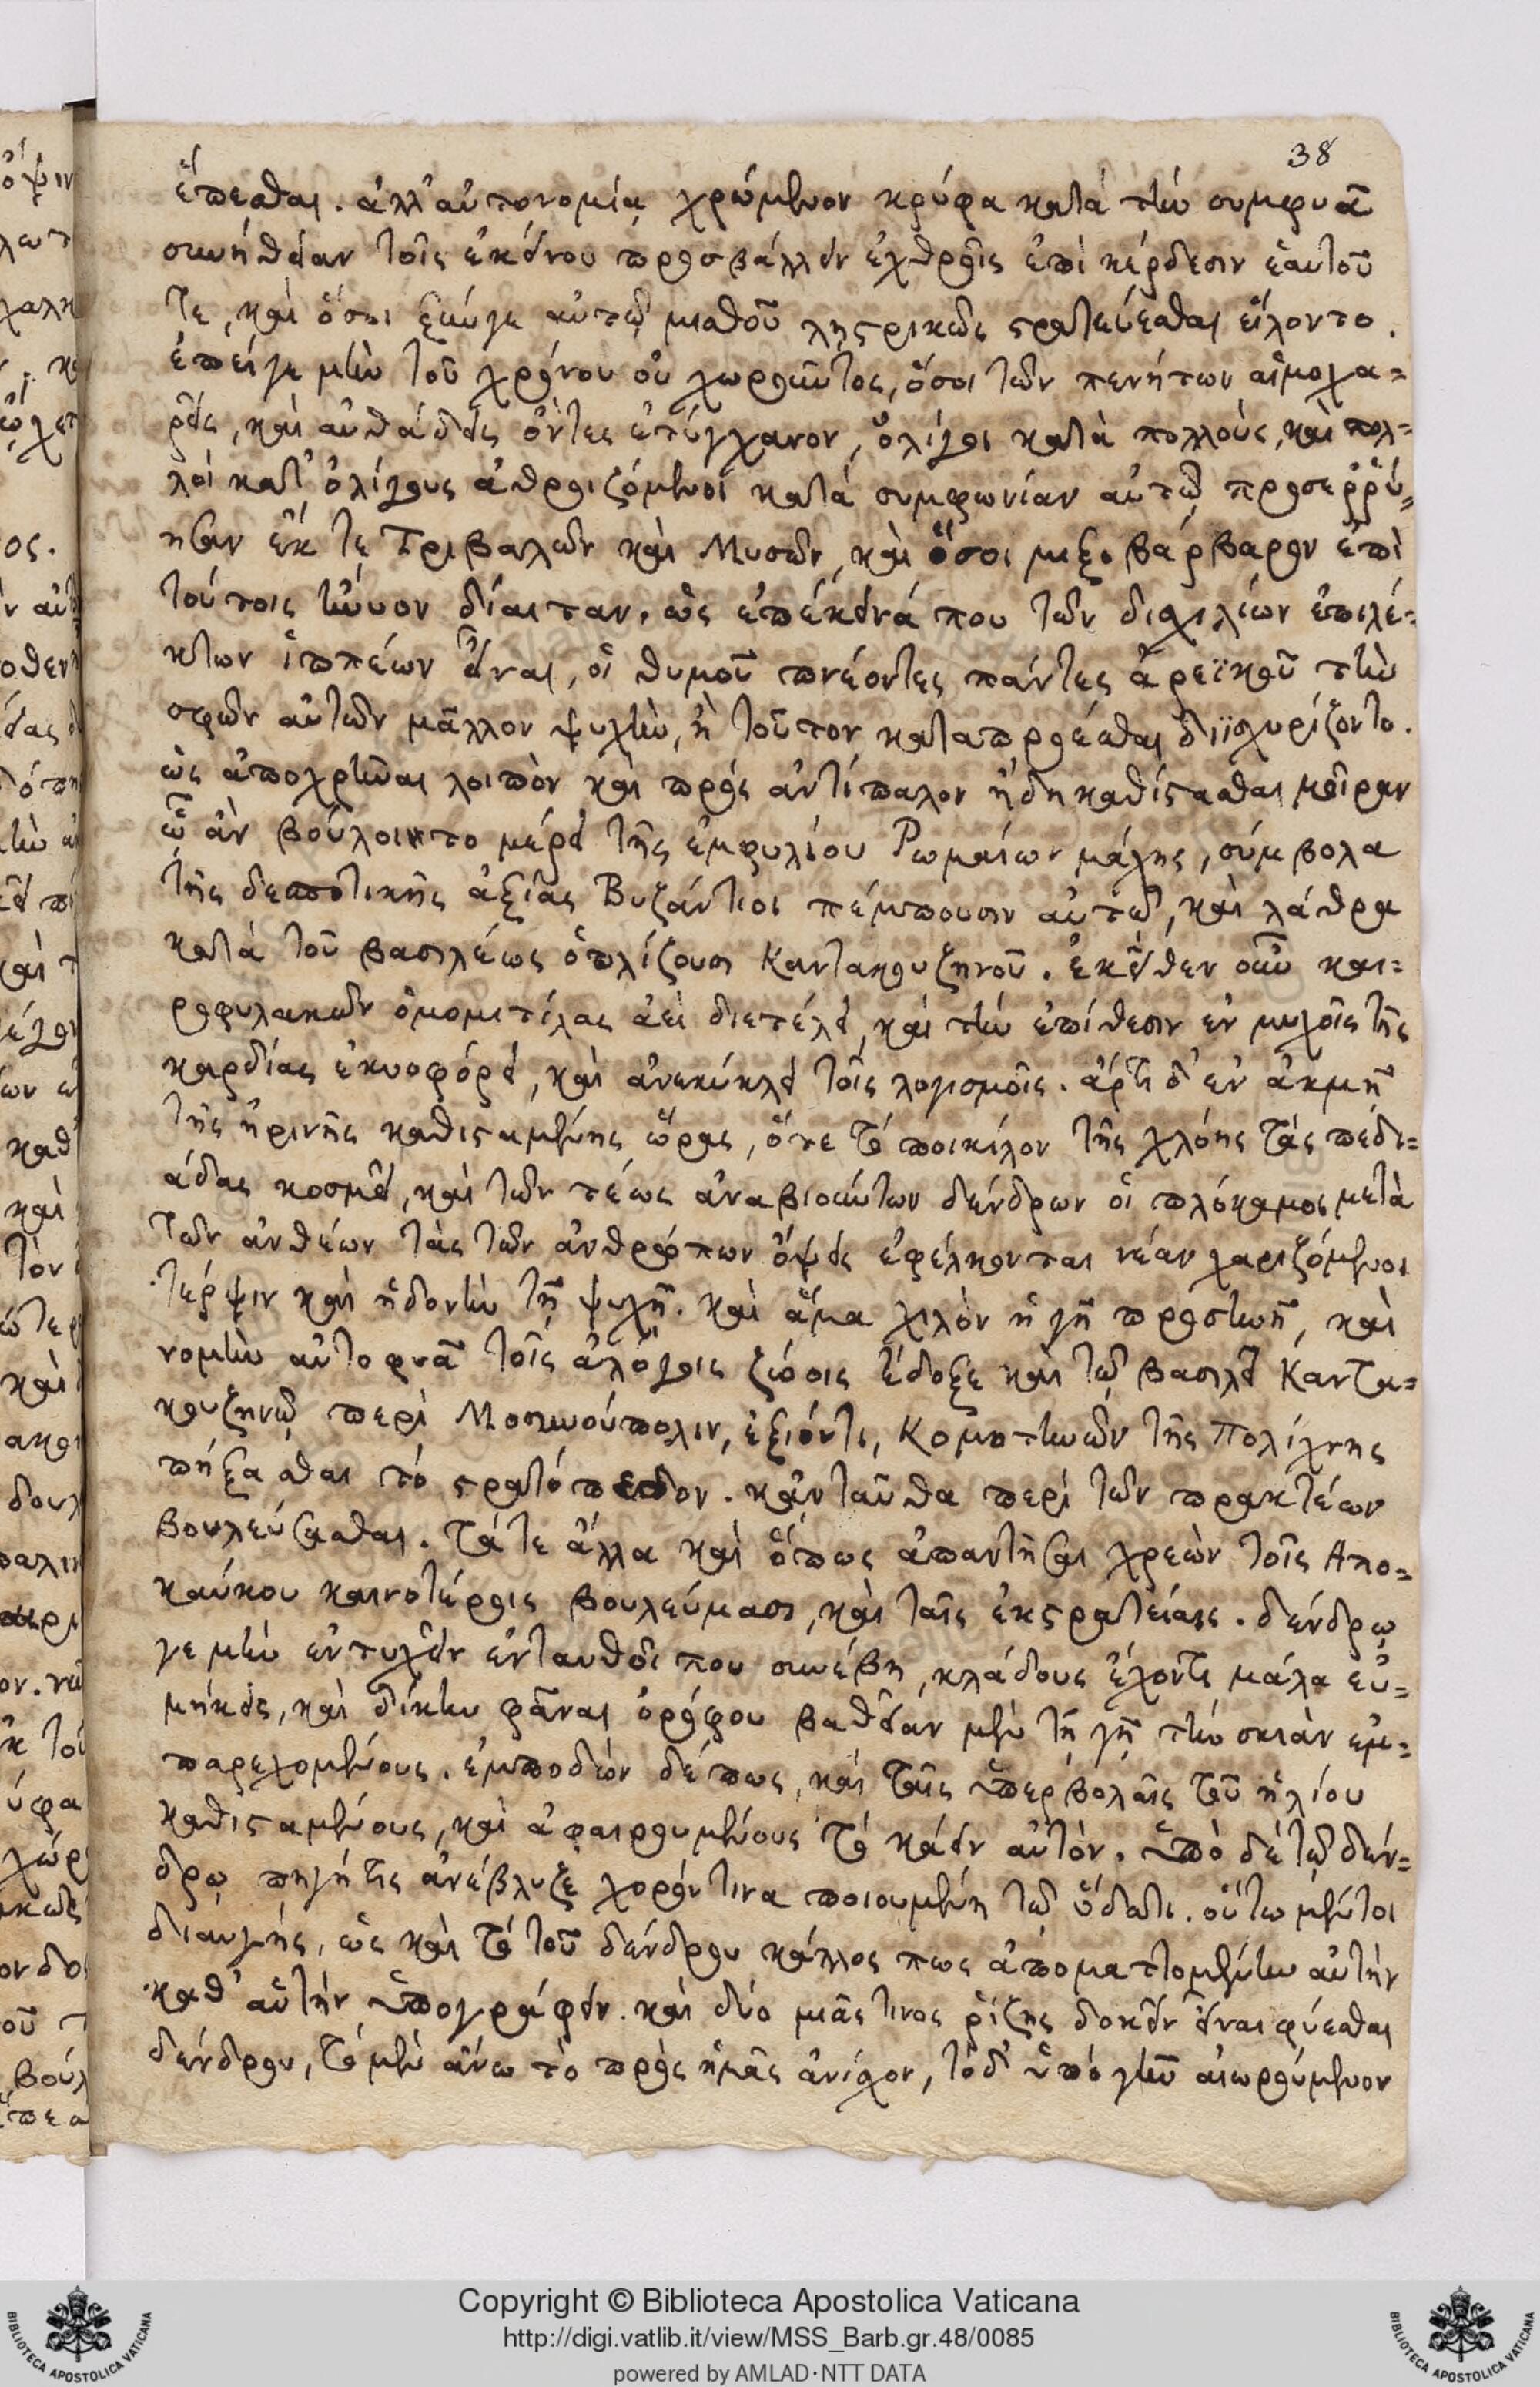 38
ἕπεσθαι. ἀλλ' αὐτονομίᾳ χρώμενον κρύφα κατὰ τὴν συμφυᾶ
συνήθειαν τοῖς ἐκείνου προσβάλλειν ἐχθροῖς ἐπὶ κέρδεσιν ἑαυτοῦ
τε, καὶ ὅσοι ξύν γε αὐτῷ μισθοῦ λῃστρικῶς στρατεύεσθαι εἵλοντο.
ἐπεί γε μὴν τοῦ χρόνου οὐ χωροῦντος, ὅσοι τῶν πενήτων αἱμοχα=
ρεῖς, καὶ αὐθάδεις ὄντες ἐτύγχανον, ὀλίγοι κατὰ πολλοὺς, καὶ πολ=
λοὶ κατ' ὀλίγους ἀθροιζόμενοι κατὰ συμφωνίαν αὐτῷ προσεῤῥύ=
ησαν ἔκ τε Τριβαλῶν καὶ Μυσῶν, καὶ ὅσοι μιξοβάρβαρον ἐπὶ
τούτοις ηὔχουν δίαιταν. ὡς ἐπέκεινά που τῶν δισχιλίων ἐπιλέ=
κτων ἱππέων εἶναι, οἳ θυμοῦ πνέοντες πάντες ἀρεϊκοῦ τὴν
σφῶν αὐτῶν μᾶλλον ψυχὴν, ἢ τοῦτον καταπροέσθαι διϊσχυρίζοντο.
ὡς ἀποχρῶναι λοιπὸν καὶ πρὸς ἀντίπαλον ἤδη καθίστασθαι μοῖραν
ᾧ ἂν βούλοιντο μέρει τῆς ἐμφυλίου Ῥωμαίων μάχης, σύμβολα
τῆς δεσποτικῆς ἀξίας Βυζάντιοι πέμπουσιν αὐτῷ, καὶ λάθρα
κατὰ τοῦ βασιλέως ὁπλίζουσι Καντακουζηνοῦ. ἐκεῖθεν οὖν και=
ροφυλακῶν ὁ μομιτίλας ἀεὶ διετέλει, καὶ τὴν ἐπίθεσιν ἐν μυχοῖς τῆς
καρδίας ἐκυοφόρει, καὶ ἀνεκύκλει τοῖς λογισμοῖς. ἄρτι δ' ἐν ἀκμῇ
τῆς ἠρινῆς καθισταμένης ὥρας, ὅτε τὸ ποικίλον τῆς χλόης τὰς πεδι=
άδας κοσμεῖ, καὶ τῶν τέως ἀναβιούντων δένδρων οἱ πλόκαμοι μετὰ
τῶν ἀνθέων τὰς τῶν ἀνθρώπων ὄψεις ἐφέλκονται νέαν χαριζόμενοι
τέρψιν καὶ ἡδονὴν τῇ ψυχῇ. καὶ ἅμα χιλὸν ἡ γῆ προὐστίθη, καὶ
νομὴν αὐτοφυᾶ τοῖς ἀλόγοις ζώοις ἔδοξε καὶ τῷ βασιλεῖ Καντα=
κουζηνῷ περὶ Μοσυνούπολιν, ἐξιόντι, Κομοτηνῶν τῆς Πολίχνης
πήξασθαι τὸ στρατόπεδον. κἀνταῦθα περὶ τῶν πρακτέων
βουλεύσασθαι. τά τε ἄλλα καὶ ὅπως ἀπαντῆσαι χρεὼν τοῖς Ἀπο=
καύκου καινοτέροις βουλεύμασι, καὶ ταῖς ἐκστρατείαις. δένδρῳ
γε μὴν ἐντυχεῖν ἐνταυθοῖ που συνέβη, κλάδους ἔχοντι μάλα εὐ=
μήκεις, καὶ δίκην φᾶναι ὀρόφου βαθεῖαν μὲν τῇ γῇ τὴν σκιὰν ἐμ=
παρεχομένους. ἐμποδὼν δέ πως, καὶ ταῖς ὑπερβολαῖς τοῦ ἡλίου
καθισταμένους, καὶ ἀφαιρουμένους τὸ κάειν αὐτόν. ὑπὸ δὲ τῷ δέν=
δρῳ πηγή τις ἀνέβλυζε χορόν τινα ποιουμένη τῷ ὕδατι. οὕτω μέντοι
διαυγής, ὡς καὶ τὸ τοῦ δένδρου κάλλος πως ἀποματτομένην αὐτὴν
καθ' αὑτὴν ὑπογράφειν. καὶ δύο μιᾶς τινος ῥίζης δοκεῖν εἶναι φύεσθαι
δένδρου, τὸ μὲν ἄνω τὸ πρὸς ἡμᾶς ἀνίσχον, τὸ δ' ὑπὸ γῆν αἰωρούμενον
Copyright © Biblioteca Apostolica Vaticana
http://digi.vatlib.it/view/MSS_Barb.gr.48/0085
powered by AMLAD·NTT DATA
BIBLIOTECA APOSTOLICA VATICANA
BIBLIOTECA APOSTOLICA VATICANA